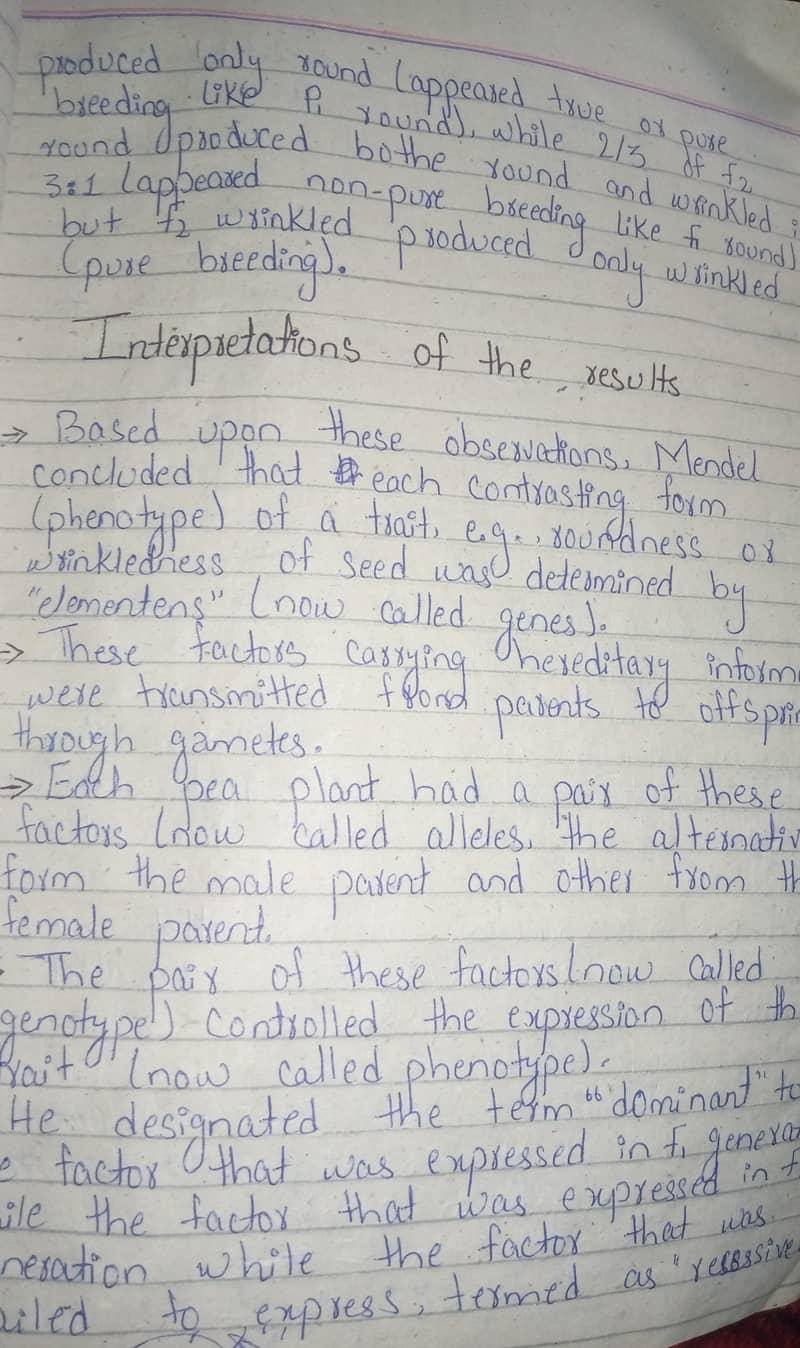 produced only round (appeared true or pure
breeding like P1 round), while 2/3 of f2
round produced bothe round and wrinkled ;
3:1 (appeared non-pure breeding like f1 round)
but f2 wrinkled produced only wrinkled
(pure breeding).
Interpretations of the results
⇒ Based upon these observations, Mendel
concluded that each contrasting form
(phenotype) of a trait, e.g., roundness or
wrinkledness of seed was determined by
"elementens" (now called genes).
⇒ These factors carrying hereditary inform
were transmitted from parents to offsprin
through gametes.
⇒ Each pea plant had a pair of these
factors (now called alleles, the alternativ
form the male parent and other from th
female parent.
The pair of these factors (now called
genotype) controlled the expression of th
rait (now called phenotype).
He designated the term "dominant" to
e factor that was expressed in f1 genera
ile the factor that was expressed in f
neration while the factor that was
iled to express, termed as "recessive